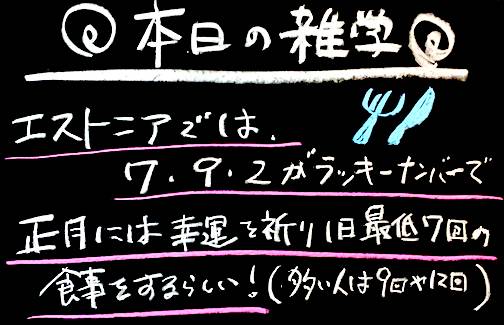 本日の雑学
エストニアでは、
7・9・2がラッキーナンバーで
正月には幸運を祈り1日最低7回の
食事をするらしい!(多い人は9回や12回)